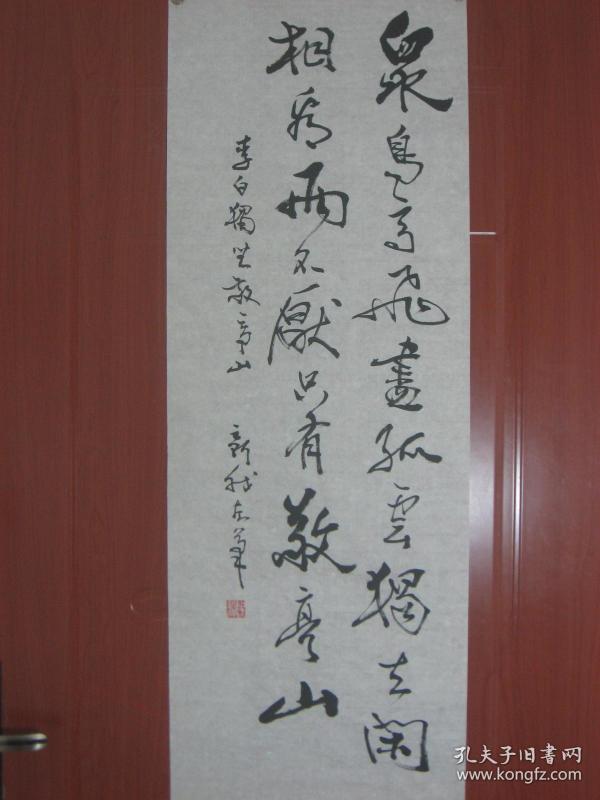 眾鳥高飛盡孤雲獨去閑
相看兩不厭只有敬亭山
李白獨坐敬亭山
孔夫子旧書网
www.kongfz.com